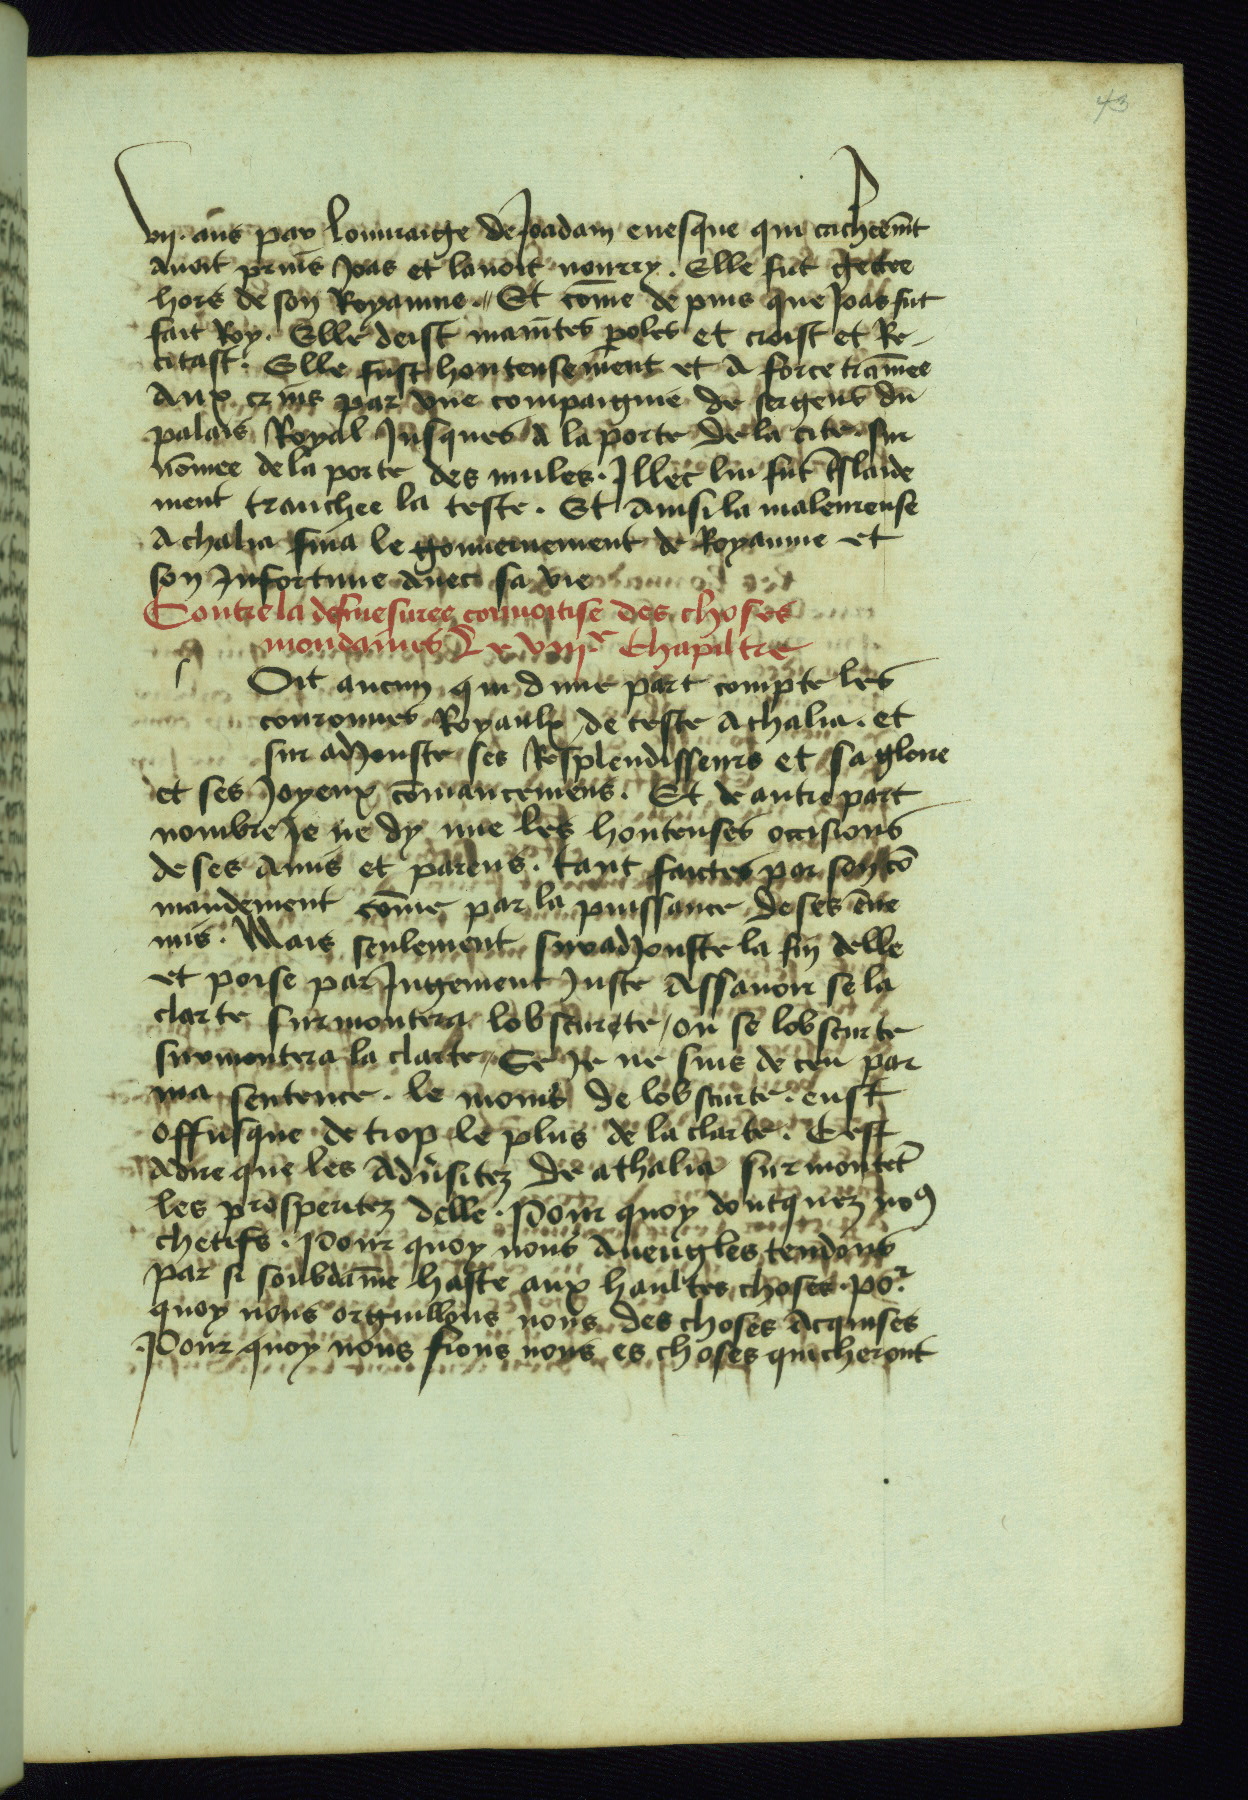 43
vij. ans par louuraige de Joadam euesque qui cacheem̄t
auoit prins Joas et lauoit nourry. Elle fut gectee
hors de son Royaume. Et cōme de puis que Joas fut
fait Roy. Elle deist maintes poles et criast et Re-
citast. Elle fust honteusement et a force tramee
Aux crins par vne compaignie de sergens du
palais Royal Jusques a la porte de la cite. sur
nōmee de la porte des mules. Illec lui fut laide
ment tranchee la teste. Et Ainsi la maleureuse
Athalia fina le gouuernement de Royaume et
son Infortune auec sa vie
Contre la desmesuree conuoitise des choses
mondaines Le viije Chapiltre
Oit aucun qui dune part compte les
couronnes Royaulx de ceste Athalia. et
sur adJouste ses Resplendisseurs et sa gloire
et ses Joyeux cōmancemens. Et de autre part
nombre Je ne dy mie les honteuses occisions
de ses Amis et parens. tant faictes par son cō
mandement cōme par la puissance de ses ēne
mis. Mais seulement suradJouste la fin delle
et poise par Jngement Juste Assauoir se la
clarte surmontera lobscurete / ou se lobscurte
surmontera la clarte. Se Je ne suis deceu par
ma sentence. le moins de lobscurte. eust
offusque de trop le plus de la clarte. Cest
adire que les Adūsitez de athalia surmontēt
les prosperitez delle. Pour quoy doncquez noꝰ
chetifs. Pour quoy nous Aueugles tendons
par si soubdāme haste aux haultes choses. por
quoy nous orguillons nous des choses Acquises
Pour quoy nous fions nous es choses qui cheront